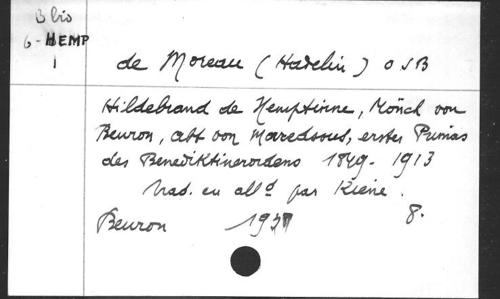 B bio
6-HEMP
1
de Moreau (Hadelin) OSB
Hildebrand de Hemptinne, Mönch von
Beuron, abt von Maredsous, erster Primas
des Benediktinerordens 1849-1913
Trad. en alld par Kiene.
Beuron 1937 8.